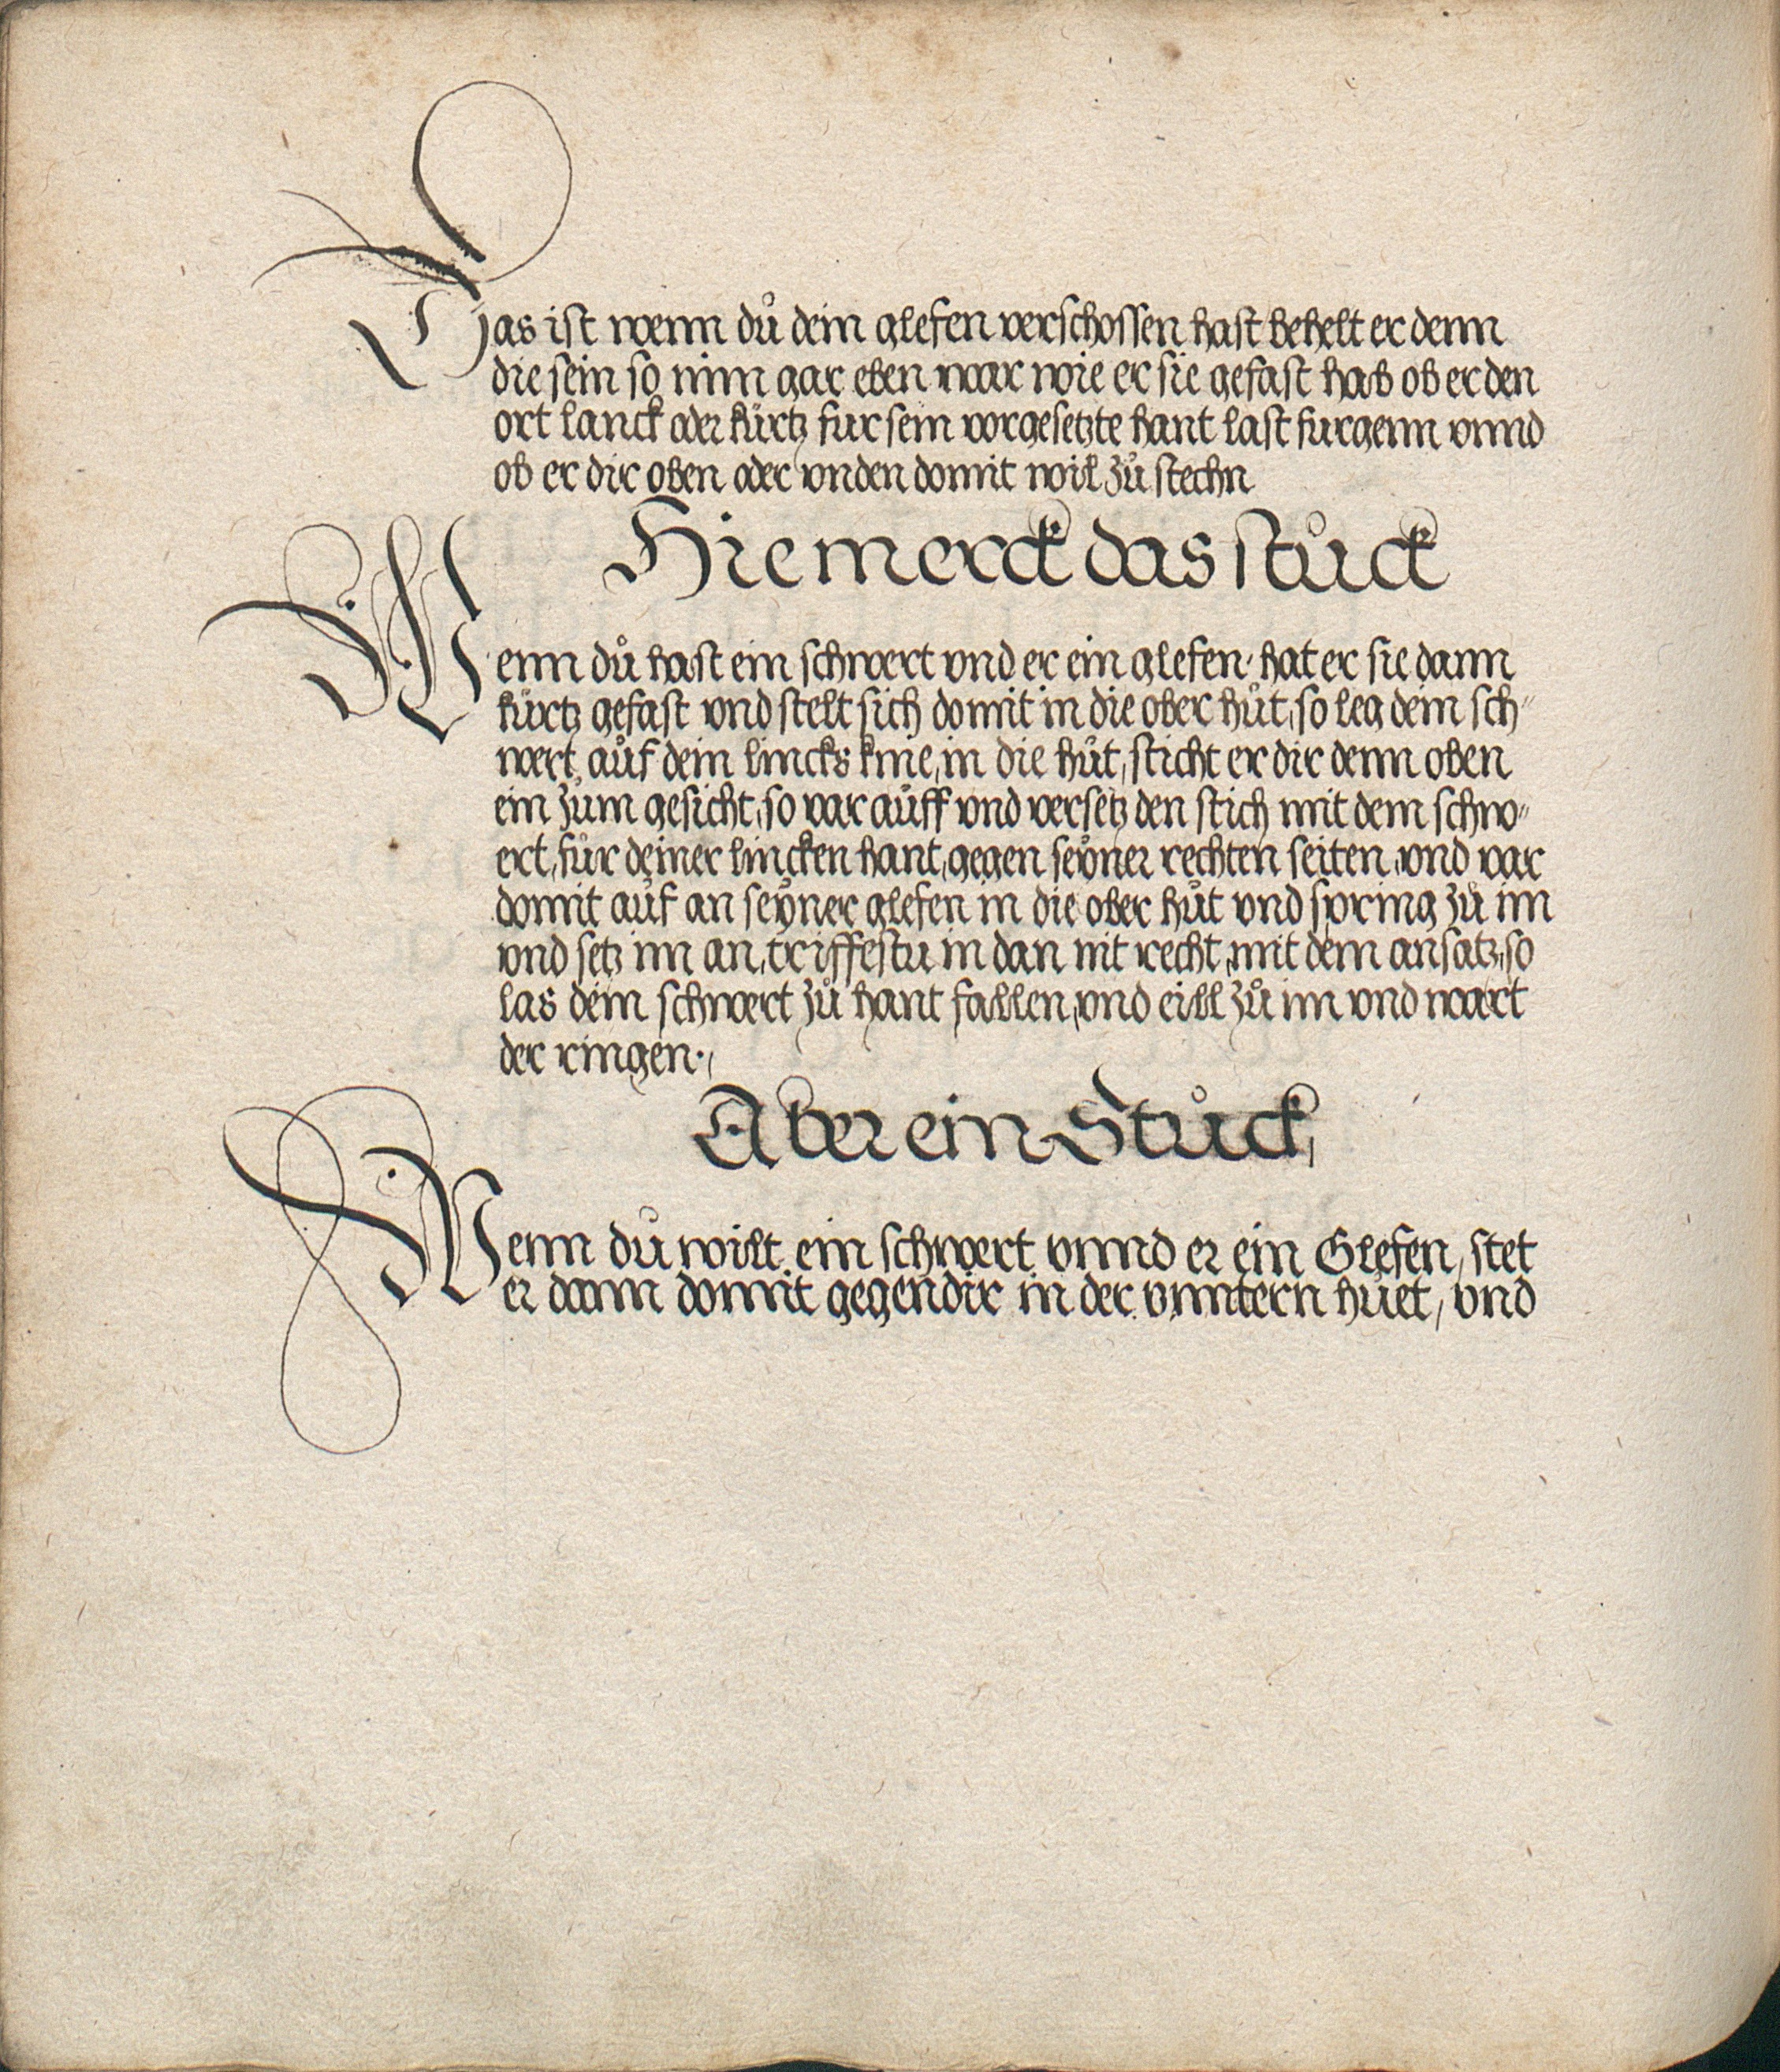 Das ist wenn dů dein glefen verschossen hast behelt er denn
die sein so nim gar eben war wie er sie gefast hab ob er den
ort lanck oder kůrtz fur sein vorgesetzte hant last furgenn vnnd
ob er dir oben oder vnden domit wil zů stechn
Hie merck das stůck
Wenn dů hast ein schwert vnd er ein glefen· hat er sie dann
kůrtz gefast vnd stelt sich domit in die ober hůt, so leg dein sch„
wert, aůf dein lincks knie, in die hůt, sticht er dir denn oben
ein zům gesicht, so var aůff vnd versetz den stich mit dem schw„
ert, fůr deiner lincken hant, gegen seÿner rechten seiten, vnd var
domit aůf an seÿner glefen in die ober hůt vnd spring zů im
vnd setz im an, triffestu in dan nit recht, mit dem ansatz, so
las dein schwert zů hant fallen, vnd eill zů im vnd wart
der ringen·,
Aber ein Stůck,
Wenn dů wilt ein schwert vnnd er ein Glefen, stet
er dann domit gegen dir in der vnntern hůet, vnd